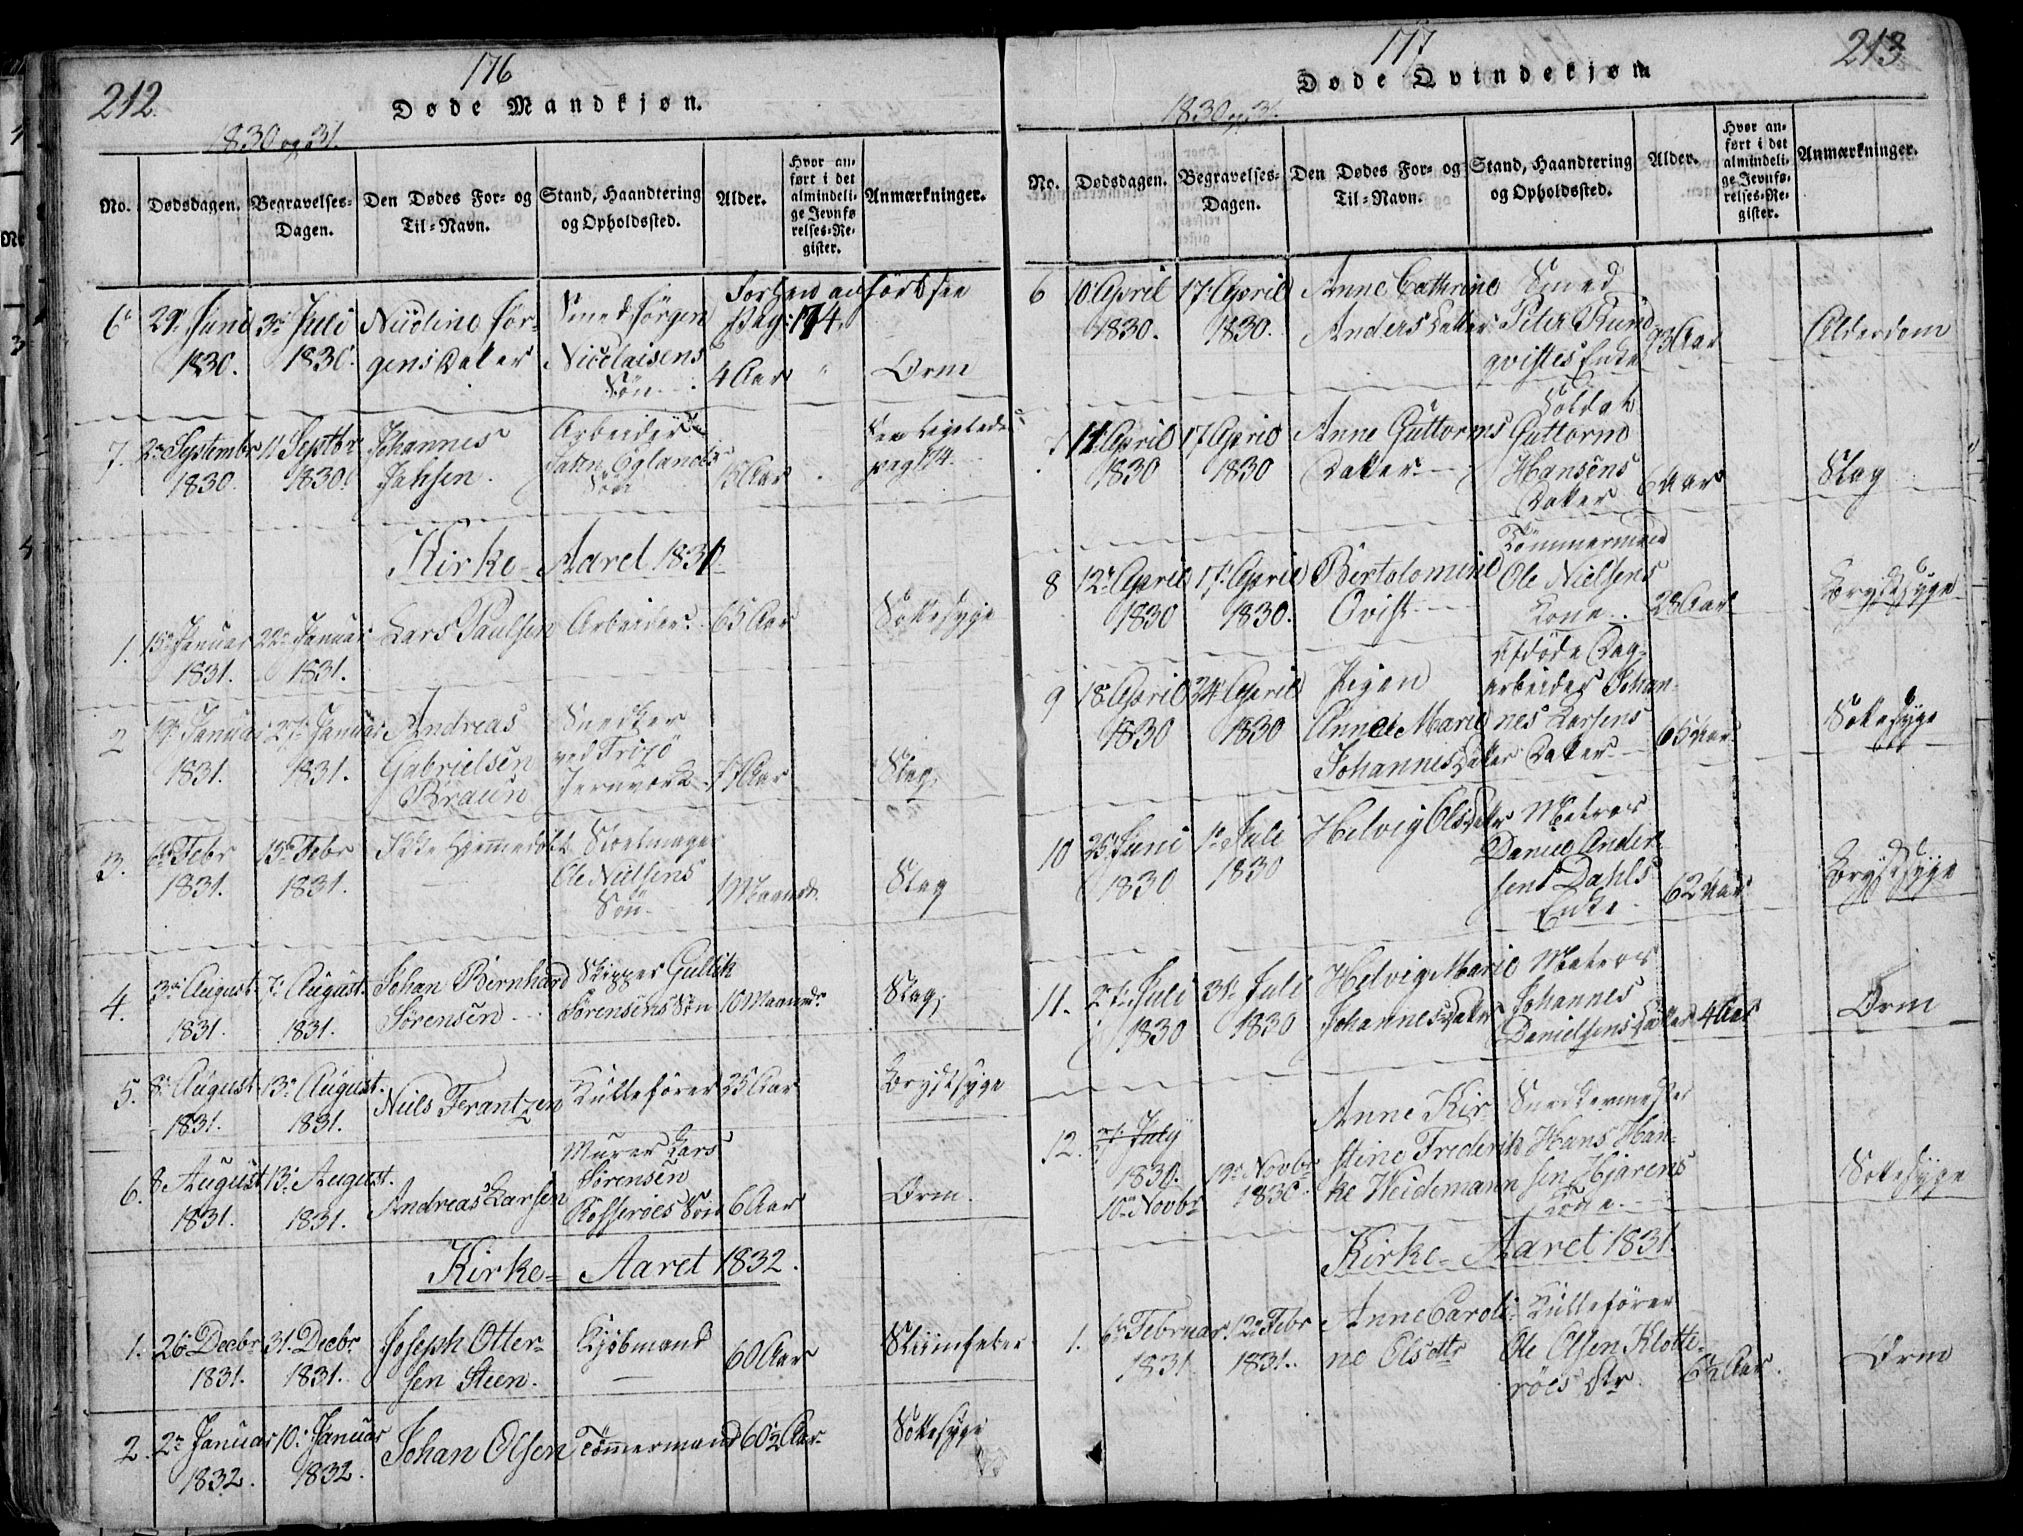 212.
176
Døde Mandkjøn.
1830 og 31.
No.
Dødsdagen.
Begravelses-
Dagen.
Den Dødes For- og
Til-Navn.
Stand, Haandtering
og Opholdssted.
Alder.
Hvor an-
ført i det
almindeli-
ge Jevnfø
relses-Re-
gister.
Anmærkninger.
6 29 Juni 3 Juli Jør- Smed Jørgen Forhen anført see
1830. 1830. gens Nicolaisens Pag: 174.
Søn 4 Aar Orm
7. 2 Septembr 11 Septbr Johannes Arbeider See
1830. 1830. Jahsen. Øglands Søn Aar pag 174.
Kirke-Aaret 1831.
1. 15 Januar 22 Januar Lars Paulsen Arbeider. 65 Aar Sottesyge
1831. 1831.
2 19 Januar 27 Januar Andreas Snedker
1831. 1831. Gabrielsen ved Frizö
Braun Jernværk Aar Slag.
3. 6 Febr 13 Febr Ikke hjemmedøbt
1831. 1831. Ole Nielsens
Søn 1 Maaned. Slag
4. 3 August 7 August Johan Bernhard Skipper Gullik
1831. 1831. Sørensen Sørensens Søn 10 Maaneder Slag.
5. 8 August 13 August. Niels Frantzen Kullefører 25 Aar Brystsyge
1831. 1831.
6. 8 August 13 August. Andreas Larsen Murer Lars
1831. 1831. Sørensen
Søn 6 Aar Orm.
Kirke-Aaret 1832.
1. 26 Decbr 31 Decbr. Joseph Otter- Kjøbmand 60 Aar
1831. 1831. sen Steen.
2. 2 Januar 10 Januar Johan Olsen Tømmermand 60½ Aar Sottesyge
1832. 1832.
177
213
Døde Qvindekjøn
1830 og 31.
No.
Dødsdagen.
Begravelses-
Dagen.
Den Dødes For- og
Til-Navn.
Stand, Haandtering
og Opholdssted.
Alder.
Hvor an-
ført i det
almindeli-
ge Jevnfø-
relses-Re-
gister.
Anmærkninger.
6 10 April 17 April Anne Cathrine Smed
1830. 1830. Anders Datter Peter Rund
qvistes Enke 93 Aar Alderdom
7 11 April 17 April Anne Guttorms Soldat
1830 1830 Datter Guttorm
Hansens
Datter 6 Aar Slag
8 12 April 17 April Bertolomine Tømmermand
1830 1830. Qvist Ole Nielsens
Kone 28 Aar Brystsyge
9 18 April 24 April Pigen Afdøde Dag-
1830 1830 Anne Marie arbeider Johan-
Johannesdatter nes Larsens
Datter 65 Aar Sottesyge
10 25 Juni 1 Juli Helvig Olsdatter Matros
1830 1830 Daniel Ander-
sens Dahls
Enke. 62 Aar Brystsyge
11. 27 Juli 31 Juli Helvig Marie Matros
1830 1830 Johannesdatter Johannes
Danielsens Datter 4 Aar Orm
12. July Anne Kir- Snedkermester
1830. 19 Novbr stine Frederik- Hans Han-
10 Novbr 1830. ke Weidemann sen Hjarens
Kone. Sottesyge
Kirke-Aaret 1831.
1. 6 Februar 12 Febr Anne Caroli- Kullefører
1831 1831. ne Olsdtr Ole Olsen Klotte-
röes Dtr. 6½ Aar. Orm